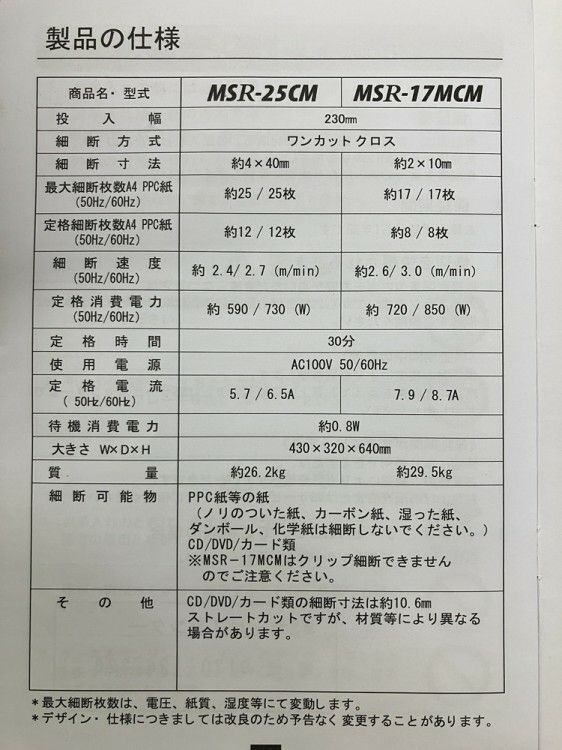 製品の仕様
商品名・型式 MSR-25CM MSR-17MCM
投入幅 230mm
細断方式 ワンカット クロス
細断寸法 約4×40mm 約2×10mm
最大細断枚数A4 PPC紙 (50Hz/60Hz) 約25 / 25枚 約17 / 17枚
定格細断枚数A4 PPC紙 (50Hz/60Hz) 約12 / 12枚 約8 / 8枚
細断速度 (50Hz/60Hz) 約 2.4/ 2.7 (m/min) 約2.6/ 3.0 (m/min)
定格消費電力 (50Hz/60Hz) 約 590 / 730 (W) 約 720 / 850 (W)
定格時間 30分
使用電源 AC100V 50/60Hz
定格電流 ( 50Hz/60Hz) 5.7 / 6.5A 7.9 / 8.7A
待機消費電力 約0.8W
大きさ W×D×H 430×320×640mm
質量 約26.2kg 約29.5kg
細断可能物 PPC紙等の紙
（ノリのついた紙、カーボン紙、湿った紙、
ダンボール、化学紙は細断しないでください。）
CD/DVD/カード類
※MSR－17MCMはクリップ細断できません
のでご注意ください。
その他 CD/DVD/カード類の細断寸法は約10.6mm
ストレートカットですが、材質等により異なる
場合があります。
＊最大細断枚数は、電圧、紙質、湿度等にて変動します。
＊デザイン・仕様につきましては改良のため予告なく変更することがあります。